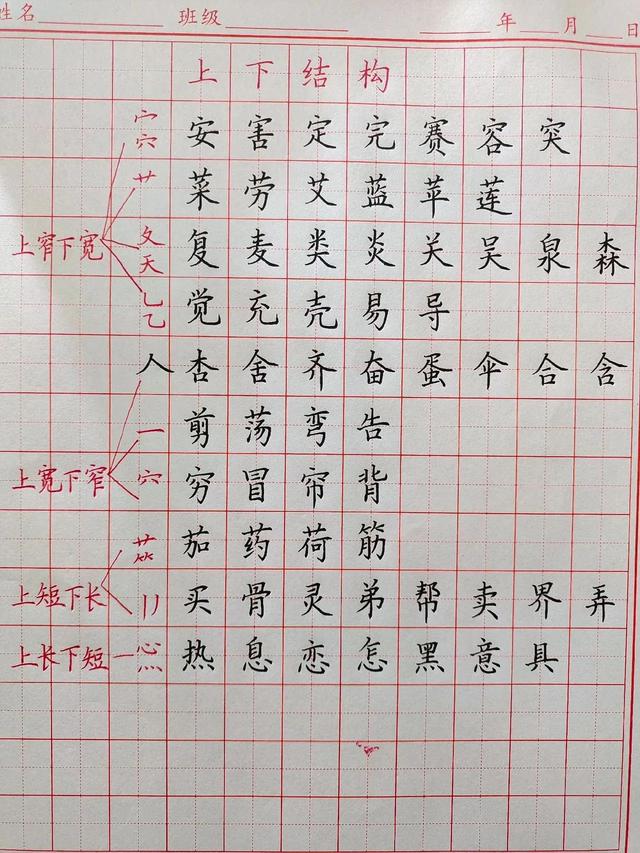 姓名 班级 年 月 日
上下结构
宀 穴 安害定完赛容突
艹 菜劳艾蓝苹莲
上窄下宽 夂 天 复麦类炎关吴泉森
乚 乙 觉充壳易导
人 杏舍齐奋蛋伞合含
一 剪荡弯告
上宽下窄 穴 穷冒帘背
艹 𥫗 茄药荷筋
上短下长 刂 买骨灵弟帮卖界弄
上长下短 心 灬 热息恋怎黑意具